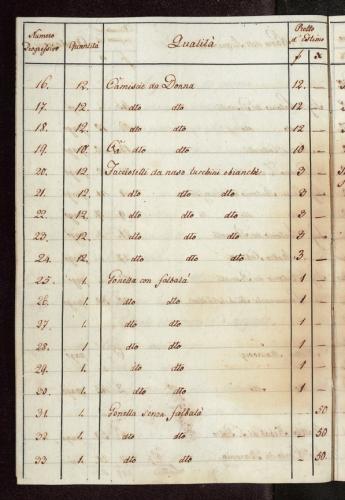 Numero Progressivo Quantità Qualità Pretto d'Estimo
f x
16. 12. Camiscie da Donna 12. —
17. 12. dto dto 12 —
18. 12. dto dto 12 —
19. 10. dto dto 10 —
20. 12. Faccioletti da naso turchini e bianchi 3 —
21. 12. dto dto dto 3 —
22. 12. dto dto dto 3 —
23. 12. dto dto dto 3 —
24. 12. dto dto dto 3. —
25. 1. Gonella con falbalà 1 —
26. 1. dto dto 1 —
27. 1. dto dto 1 —
28. 1. dto dto 1 —
29. 1. dto dto 1 —
30. 1. dto dto 1 —
31. 1. Gonella senza falbalà — 50
32. 1. dto dto — 50
33. 1. dto dto — 50.